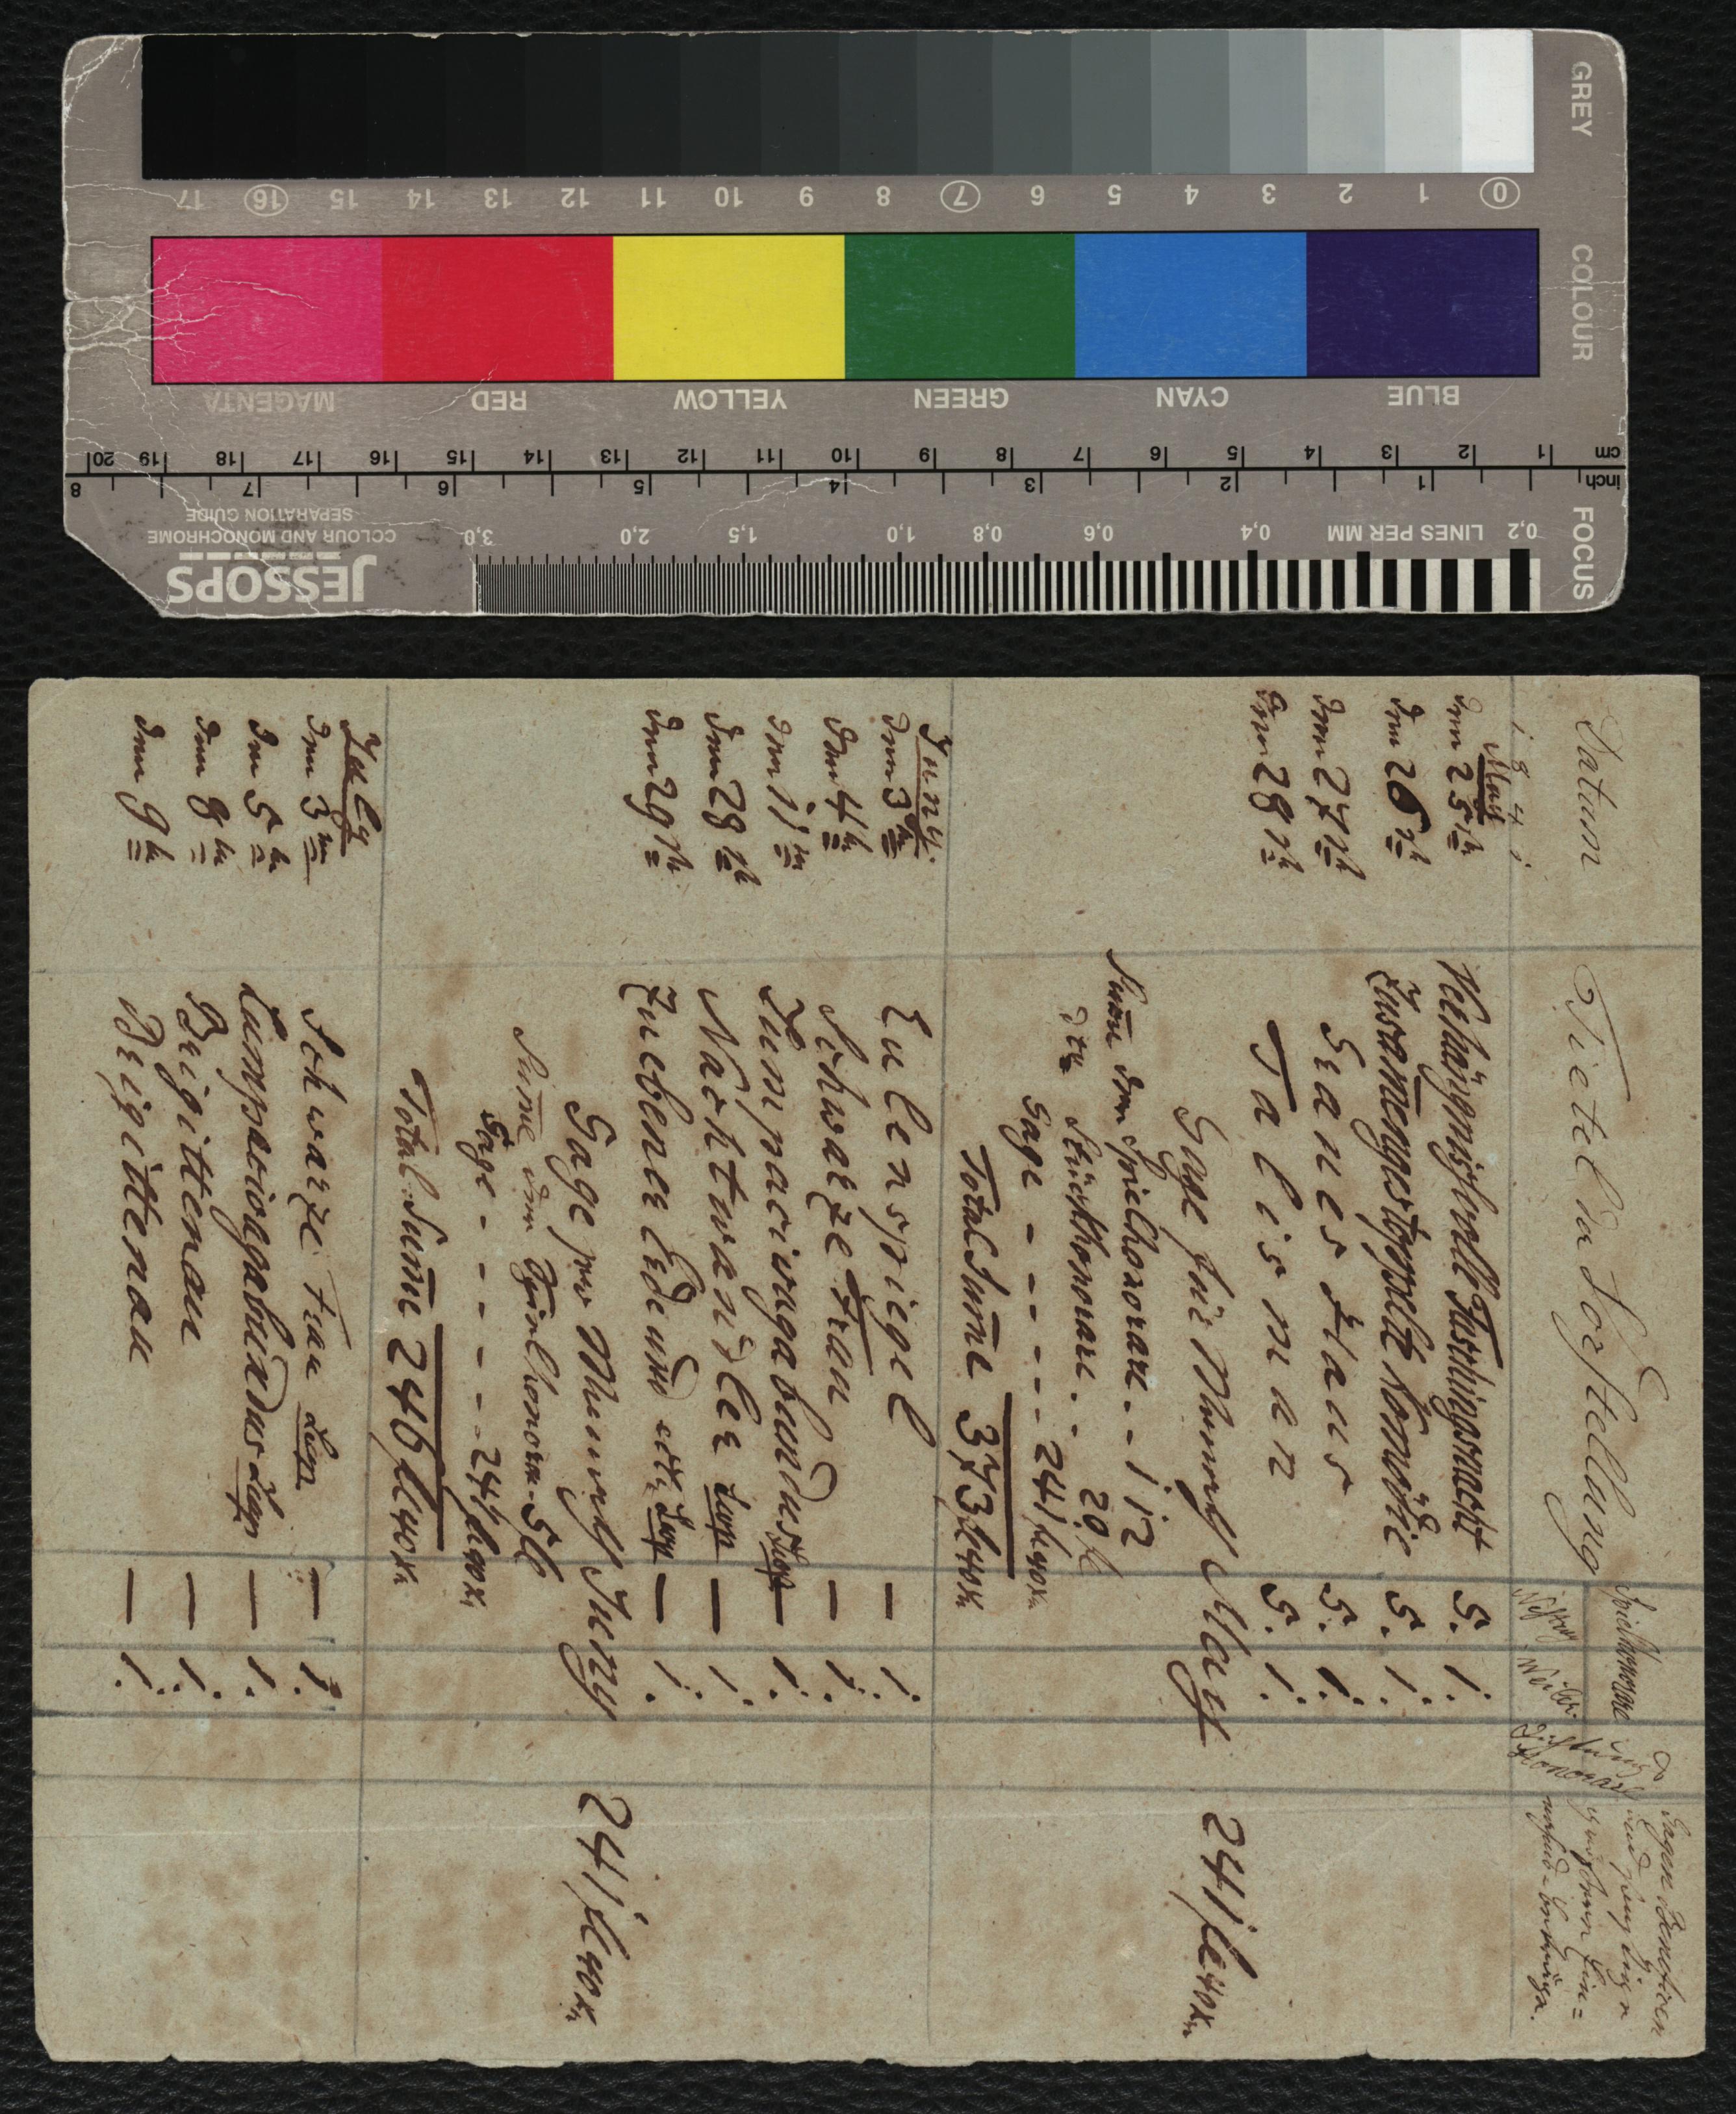 GREY
0 1 2 3 4 5 6 7 8 9 10 11 12 13 14 15 16 17
COLOUR
BLUE CYAN GREEN YELLOW RED MAGENTA
cm 1 2 3 4 5 6 7 8 9 10 11 12 13 14 15 16 17 18 19 20
inch 1 2 3 4 5 6 7 8
FOCUS
0,2 LINES PER MM 0,4 0,6 0,8 1,0 1,5 2,0 3,0
COLOUR AND MONOCHROME
SEPARATION GUIDE
JESSOPS
Datum Tietel der Vorstellung Spielhonorare
Gagen Benefizen
1841
May
den 25th Verhängnißvolle Faschingsnacht 5. 1.
den 26th Zusam̄engestoppelte Komödie 5. 1.
den 27th Graues Haus 5. 1.
den 28th Talisman 5. 1.
Gage für Monath May 241 fl 40 xr
Sum̄e der Spielhonorare - - 112
Stückhonorare - - 20 fl
Gage - - - - - 241 fl 40 xr
Total Sum̄e 373 fl 40 xr
Juny.
den 3th Eulenspiegel — 1.
den 4th Schwarze Frau — 1.
den 11th Lumpacivagabundus — 1.
den 28th Nachtwandler — 1.
den 29th Zu ebener Erde und — 1.
Gage pro Monath Juny 241 fl 40 xr
Sum̄e der Spielhonorare 5 fl
Gage - - - - - 241 fl 40 xr
Total Sum̄e 246 fl 40 xr
July
den 3th Schwarze Frau — 1.
den 5th Lumpacivagabundus — 1.
den 8th Brigittenau — 1.
den 9th Brigittenau — 1.